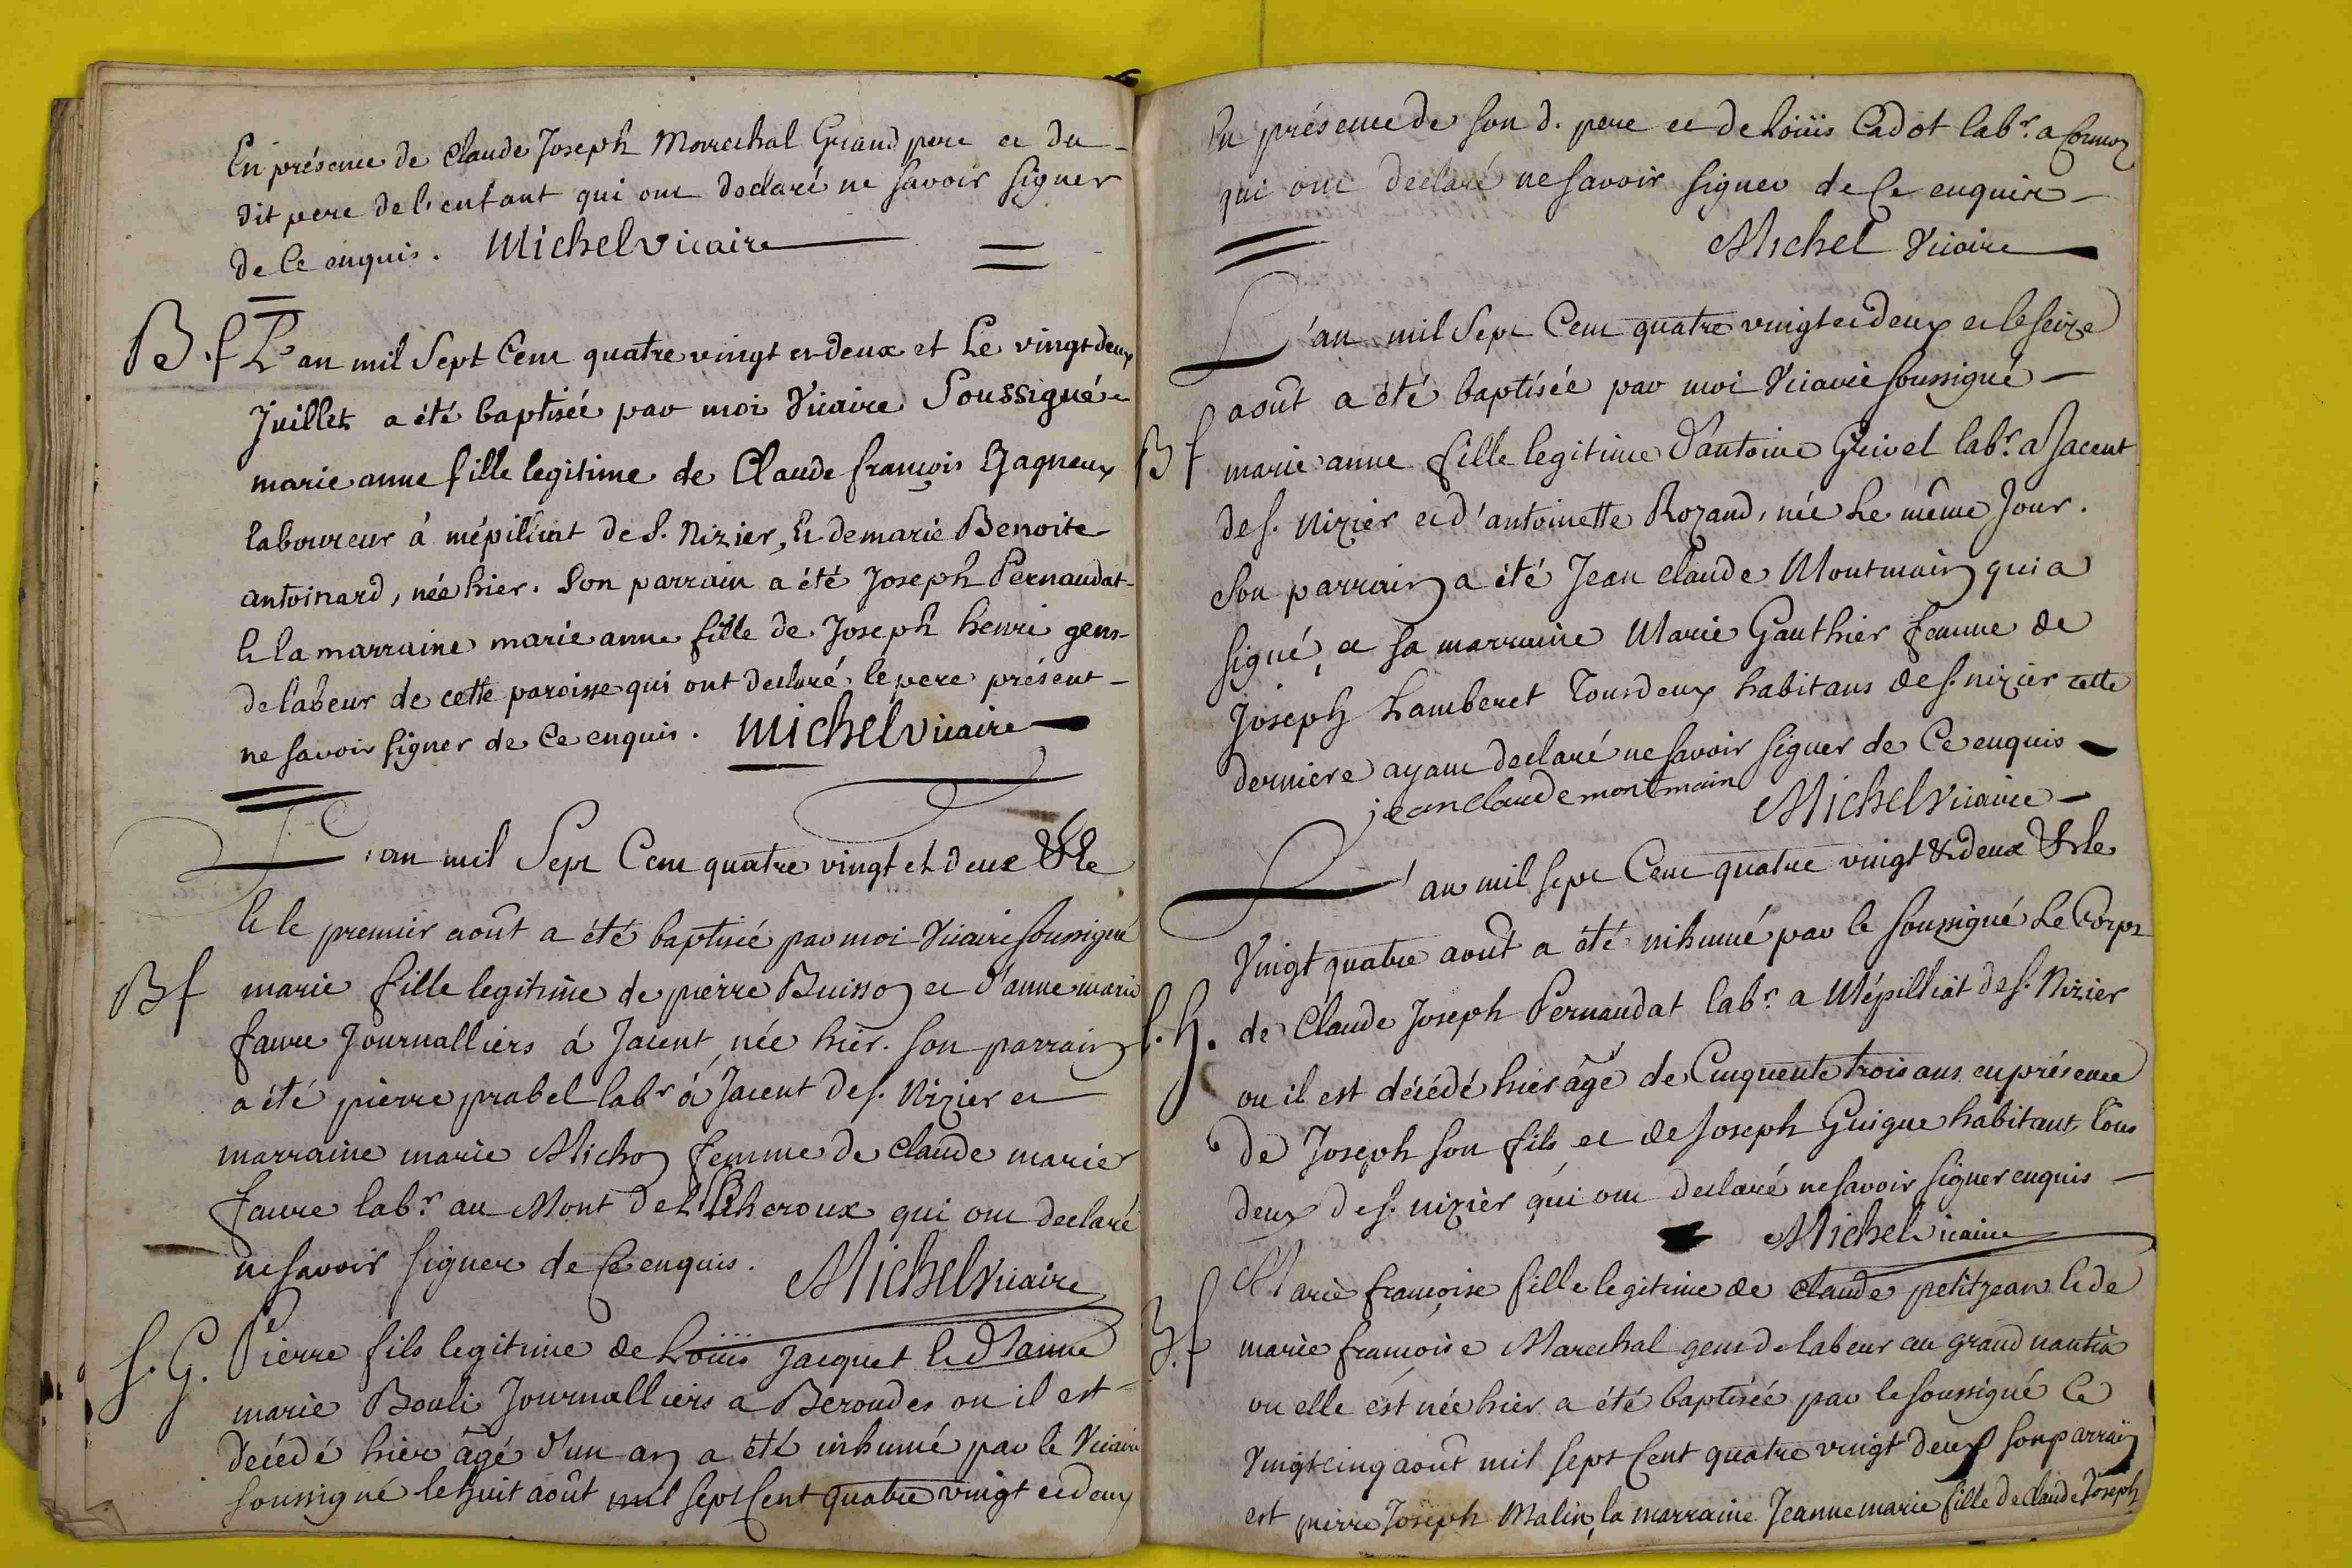 En présence de Claude Joseph Marechal Grand pere et du
dit pere de l'enfant qui ont declaré ne savoir signer
de Ce enquis. Michel vicaire
B.f L'an mil Sept Cent quatre vingt et deux et Le vingt deux
Juillet a été baptisée par moi Vicaire Soussigné
marie anne fille legitime de Claude françois Gagneux
laboureur á mépilliat de S. Nizier, et de marie Benoite
antoinard, née hier. Son parrain a été Joseph Pernaudat
et la marraine marie anne fille de Joseph henri gens
de labeur de cette paroisse qui ont declaré le pere présent
ne savoir signer de Ce enquis. Michel vicaire
L'an mil Sept Cent quatre vingt et deux & le
et le premier août a été baptisée par moi Vicaire soussigné
Bf marie fille legitime de pierre Buisson et d'anne marie
faure Journalliers á Jacent, née hier. son parrain
a été pierre prabel labr á Jacent de s. Nizier et
marraine marie Michon femme de Claude marie
faure labr au Mont de L'Echeroux qui ont declaré
ne savoir signer de Ce enquis. Michel Vicaire
S.G. Pierre fils legitime de Loüis Jacquet et d'anne
marie Bouli Journalliers a Beroudes ou il est
décédé hier âgé d'un an a été inhumé par le Vicaire
soussigné le huit août mil sept Cent quatre vingt et deux
En présence de son d. pere et de Loüis Cadot labr. a Cormoz
qui ont declaré ne savoir signer de Ce enquis
Michel Vicaire
L'an mil Sept Cent quatre vingt et deux et le seize
août a été baptisée par moi Vicaire soussigné
Bf marie anne fille legitime d'antoine Grivel labr. a Jacent
de s. Nizier et d'antoinette Rozand, née Le même Jour.
Son parrain a été Jean Claude Montmain qui a
signé, et sa marraine Marie Gauthier femme de
Joseph Lamberet Tous deux habitans de s. nizier cette
derniere ayant declaré ne savoir signer de Ce enquis
jean claude montmain Michel Vicaire
L'an mil sept Cent quatre vingt & deux & le
Vingt quatre août a été inhumé par le soussigné Le Corps
S.h. de Claude Joseph Pernaudat labr. a Mépilliat de s. Nizier
ou il est décédé hier âgé de Cinquente trois ans en présence
de Joseph son fils et de Joseph Guigue habitant Tous
deux de s. nizier qui ont declaré ne savoir signer enquis
Michel vicaire
Marie françoise fille legitime de Claude petitjean et de
B.f marie françoise Marechal gens de labeur au grand nantia
ou elle est née hier a été baptisée par le soussigné Ce
Vingt cinq août mil sept Cent quatre vingt deux son parrain
est pierre Joseph Malin, la marraine Jeanne marie fille de Claude Joseph